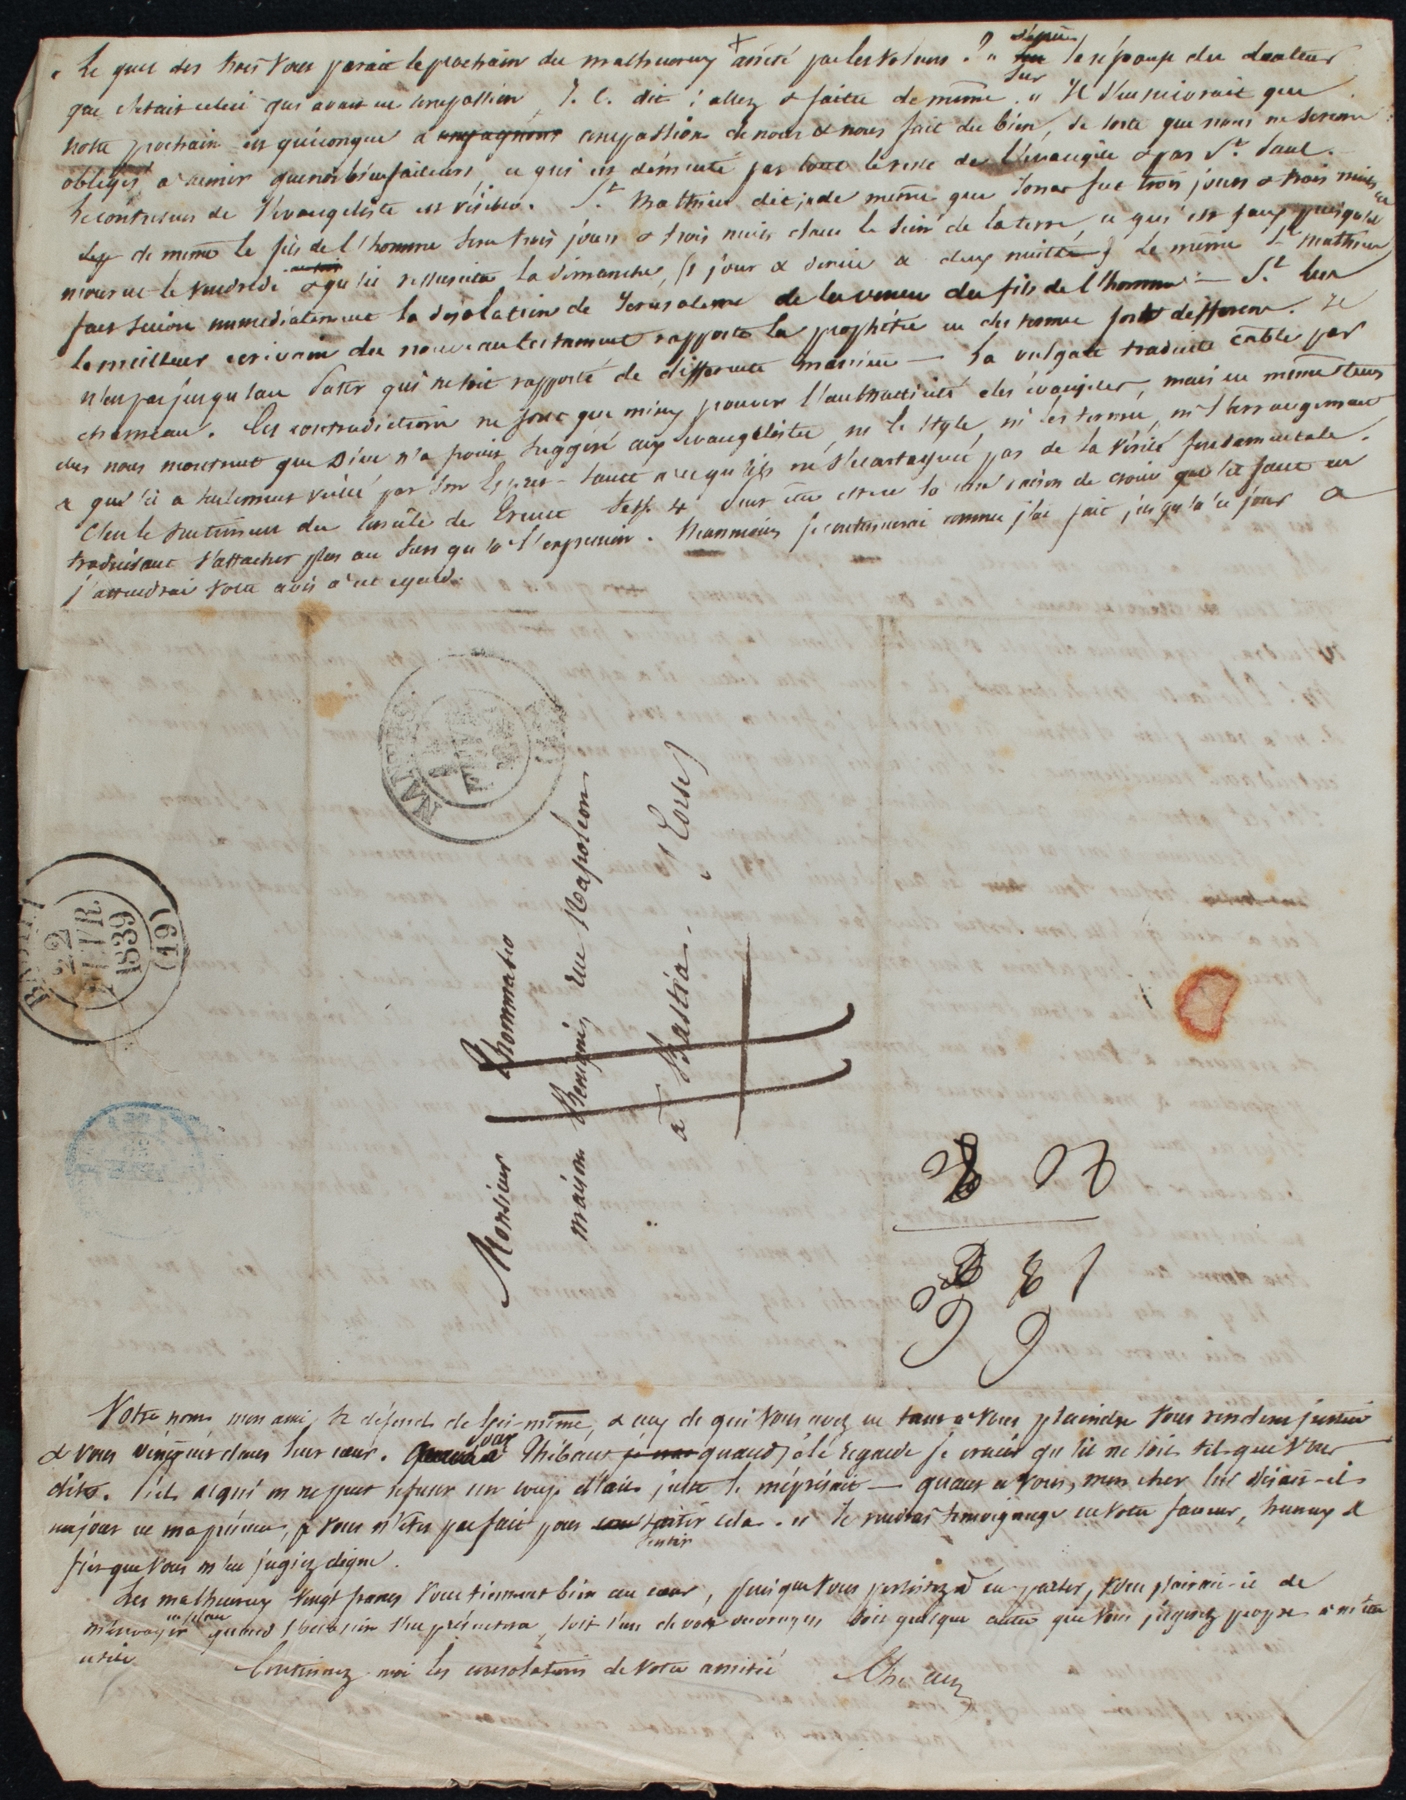 « Le quel des trois vous parait le prochain du malheureux + arrêté par les voleurs ? » d'après la réponse du docteur
que c'était celui qui avait eu compassion, J. C. dit : allez & faites de même. » Il s'ensuivrait que
notre prochain est quiconque a compassion de nous & nous fait du bien, de sorte que nous ne serions
obligés d'aimer que nos bienfaiteurs, ce qui est démenti par tout le reste de l'évangile & par St. Paul. —
Le contresens de l'évangéliste est visible. St. Mathieu dit, de même que Jonas fut trois jours & trois nuits
de même le fils de l'homme sera trois jours & trois nuits dans le sein de la terre, ce qui est faux puisqu'il
mourut le vendredi & qu'il ressuscita le dimanche, (1 jour & demi & deux nuits) Le même St. Mathieu
fait suivre immédiatement la désolation de Jérusalem de la venue du fils de l'homme — St. Luc
le meilleur écrivain du nouveau testament rapporte la prophétie en des termes fort différens. Il
n'est pas jusqu'au Pater qui ne soit rapporté de différente manière — La vulgate traduit câble par
chameau. Ces contradictions ne font que mieux prouver l'authenticité des évangiles, mais en même tems
elles nous montrent que Dieu n'a point suggéré aux évangélistes, ni le style, ni les termes, ni l'arrangement
& qu'il a seulement veillé par son Esprit-Saint à ce qu'ils ne s'écartassent pas de la vérité fondamentale.
C'est le sentiment du concile de Trente Sess. 4 c'est une raison de croire qu'il faut en
traduisant s'attacher plus au sens qu'à l'expression. Néanmoins je continuerai comme j'ai fait jusqu'à ce jour &
j'attendrai votre avis à cet égard.
NANTES
PARIS
22
FEVR
1839
(61)
Monsieur Thommaseo
maison Benigni, rue Napoléon
à Bastia. (Corse)
Votre nom, mon ami, se défend de soi-même, & ceux de qui vous avez eu tant à vous plaindre vous rendent justice
& vous vengent dans leur cœur. par Thibaut quand à le regarde je crains qu'il ne soit tel que vous
dites. à qui on ne peut refuser un coup d'œil juste le méprisait — quant à vous, mon cher lui disait-il
un jour en ma présence, vous n'êtes pas fait pour sentir cela. » Je rendrai témoignage en votre faveur, heureux &
fier que vous m'en jugiez digne.
Les malheureux vingt francs vous tiennent bien au cœur, puisque vous persistez à en parler, vous plairait-il de
m'envoyer quand l'occasion s'en présentera, soit l'un de vos ouvrages soit quelque autre que vous jugerez propre à m'être
utile.
Continuez-moi les consolations de votre amitié